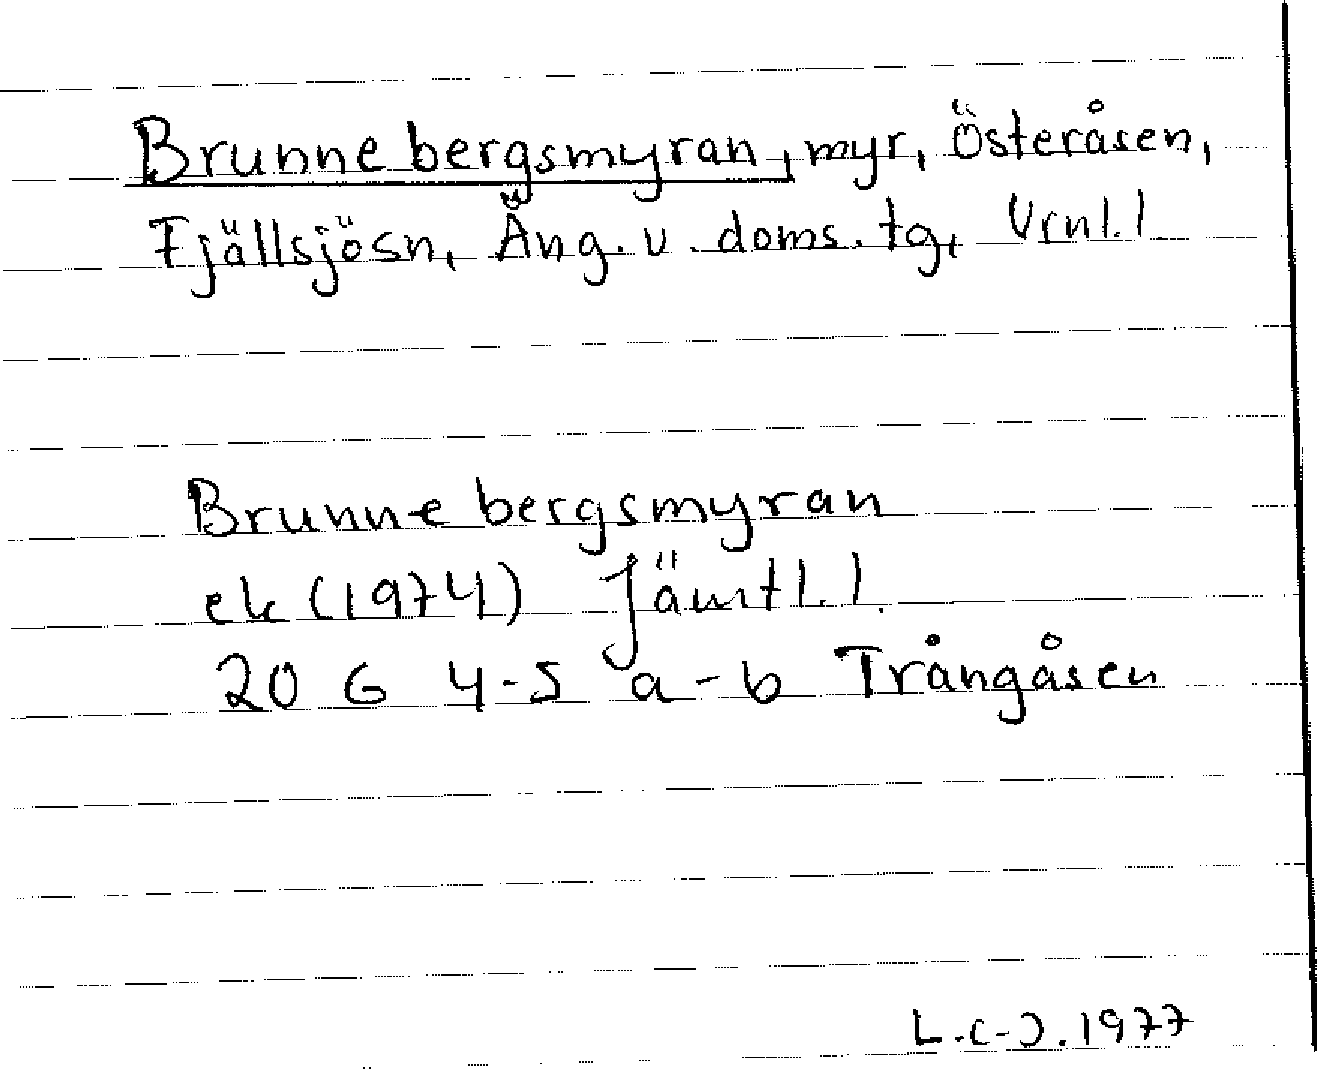 Brunnebergsmyran, myr, Österåsen,
Fjällsjösn, Äng. v. doms. tg, Vrnl. l
Brunnebergsmyran
ek (1974) Jämtl. l.
20 G 4-5 a-b Trångåsen
L.C-J. 1977